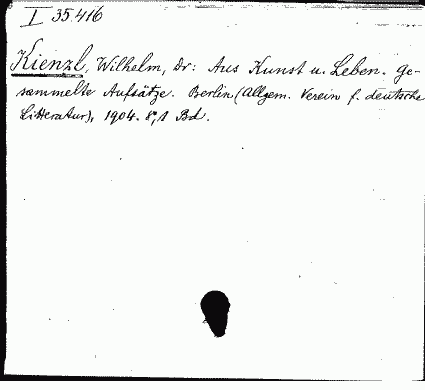 I 35.416
Kienzl, Wilhelm, Dr: Aus Kunst u. Leben. Ge-
sammelte Aufsätze. Berlin (Allgem. Verein f. deutsche
Litteratur), 1904. 8°, 1 Bd.